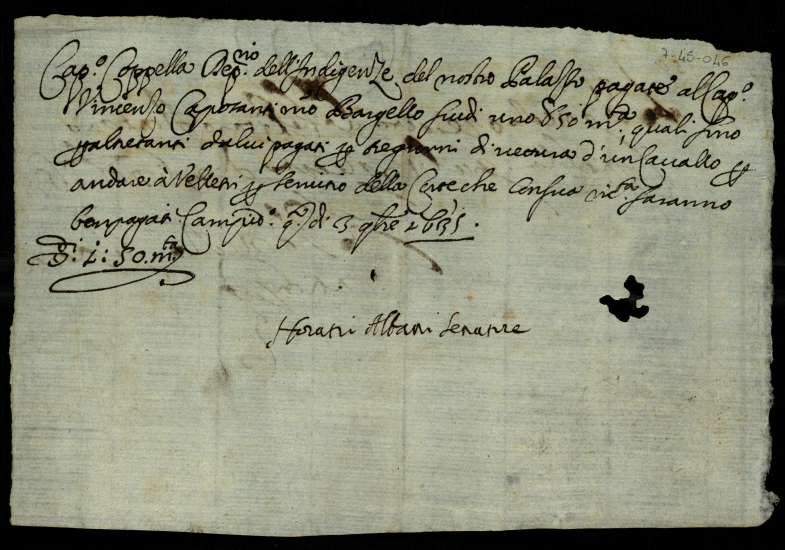 7-45-046
Cap.º Coppella Dep.rio dell'Indigenze del nostro Palazzo pagate al Cap.º
Vincenzo Caposanti mio Bargello scudi uno e 50 m.ta quali sono
p altretanti da lui pagati p tre giorni di vettura d'un Cavallo p
andare à Velletri p servitio della Corte che con sua ric.ta saranno
ben pagati Campid.º q.º dì 3 9bre 1635.
▽.di 1: 50. m.ta
Horatii Albani Senatore